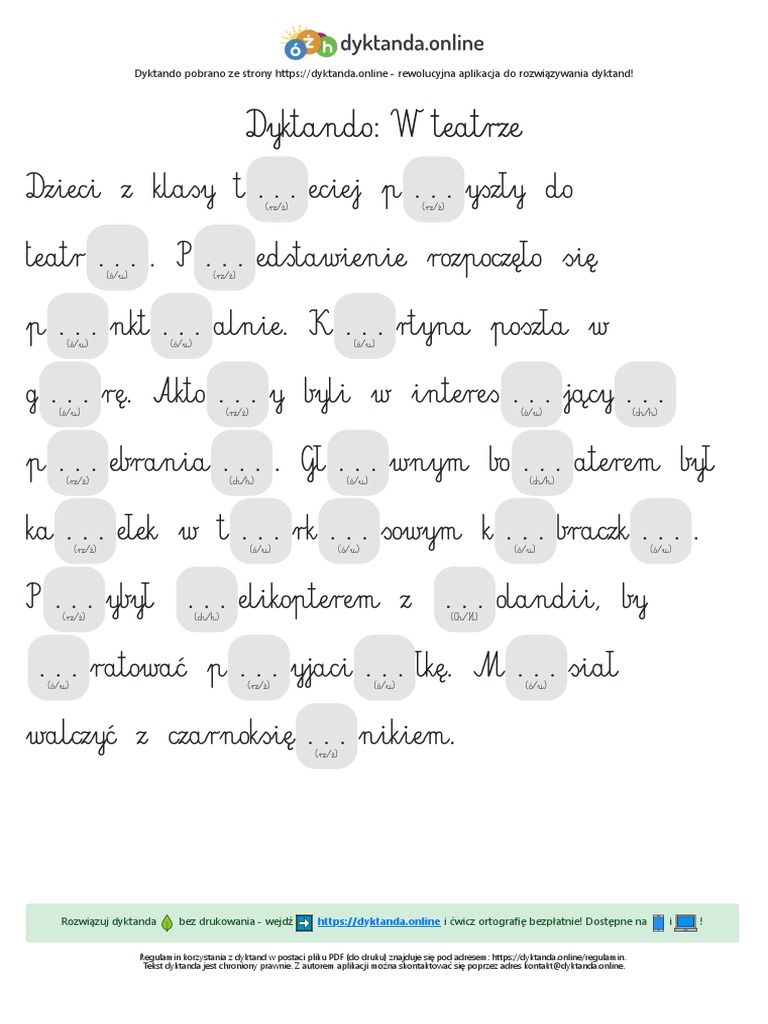 óżh dyktanda.online
Dyktando pobrano ze strony https://dyktanda.online - rewolucyjna aplikacja do rozwiązywania dyktand!
Dyktando: W teatrze
Dzieci z klasy t...(rz/ż)eciej p...(rz/ż)yszły do
teatr...(ó/u). P...(rz/ż)edstawienie rozpoczęło się
p...(ó/u)nkt...(ó/u)alnie. K...(ó/u)rtyna poszła w
g...(ó/u)rę. Akto...(rz/ż)y byli w interes...(ó/u)jący...(ch/h)
p...(rz/ż)ebrania...(ch/h). Gł...(ó/u)wnym bo...(ch/h)aterem był
ka...(rz/ż)ełek w t...(ó/u)rk...(ó/u)sowym k...(ó/u)braczk...(ó/u).
P...(rz/ż)ybył ...(ch/h)elikopterem z ...(Ch/H)olandii, by
...(ó/u)ratować p...(rz/ż)yjaci...(ó/u)łkę. M...(ó/u)siał
walczyć z czarnoksię...(rz/ż)nikiem.
Rozwiązuj dyktanda bez drukowania - wejdź https://dyktanda.online i ćwicz ortografię bezpłatnie! Dostępne na i !
Regulamin korzystania z dyktand w postaci pliku PDF (do druku) znajduje się pod adresem: https://dyktanda.online/regulamin.
Tekst dyktanda jest chroniony prawnie. Z autorem aplikacji można skontaktować się poprzez adres kontakt@dyktanda.online.